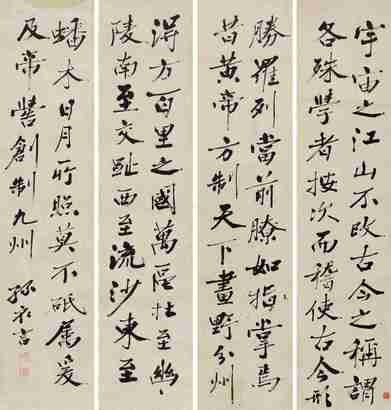 宇宙之江山不改古今之稱謂
各殊學者按次而稽使古今形
勝羅列當前瞭如指掌焉
昔黃帝方制天下畫野分州
得方百里之國萬區杜至幽
陵南至交趾西至流沙東至
蟠木日月所照莫不砥屬爰
及帝嚳創制九州 孫衣言